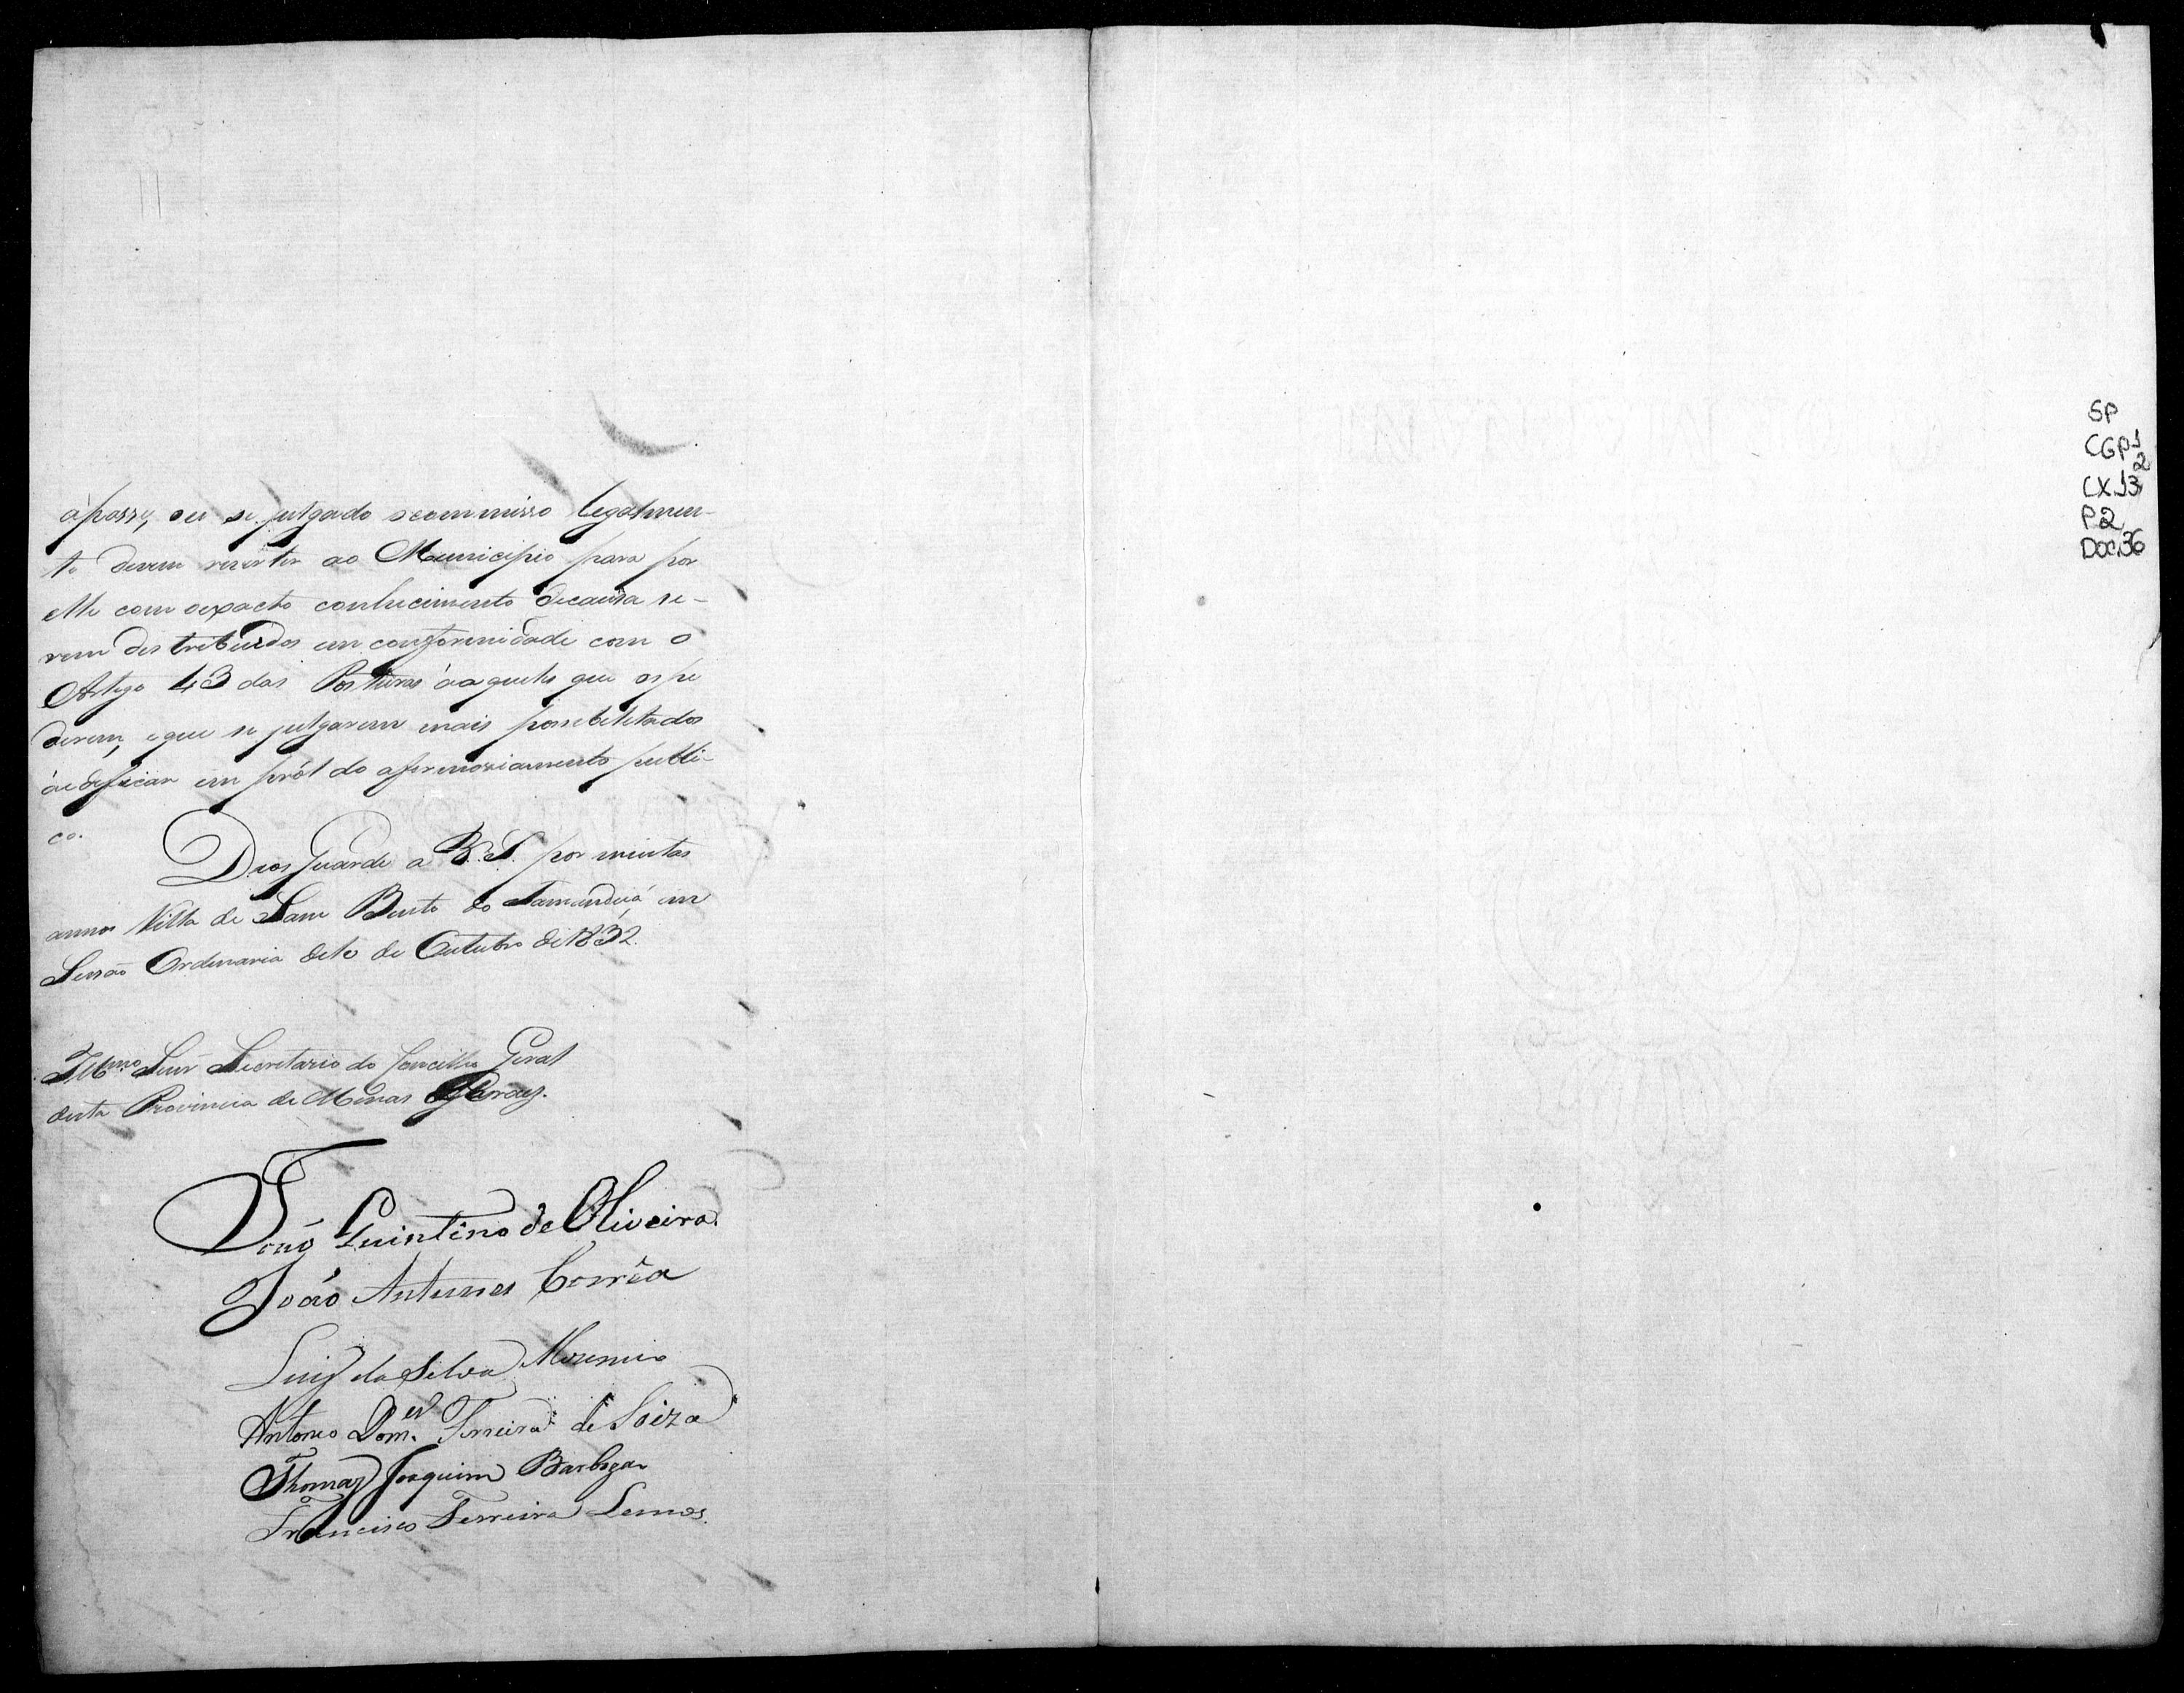 áposse, ou se julgado ocommisso legalmen-
te devem reverter ao Municipio para por
elle com oexacto conhecimento decausa se-
rem destribuidos em conformidade com o
Artigo 43 das Posturas áaquelles que os pe
direm, eque se julgarem mais possebilitados
áedeficar em pról do aformoziamento publi-
co.
Deos Guarde a V.S. por muitos
annos Villa de Sam Bento do Tamanduá em
Sessão Ordinaria de 10 de Outubro de 1832.
Illmo. Senr. Secretario do Concelho Geral
desta Provincia de Minas Geraes.
Quintino de Oliveira
João Antunes Corrêa
Luiz da Silva
Antonio Dom.es Ferreira de Soiza
Thomaz Joaquim Barboza
Francisco Ferreira Lemos.
SP
CGP1
2
CX.13
P2
Doc.36